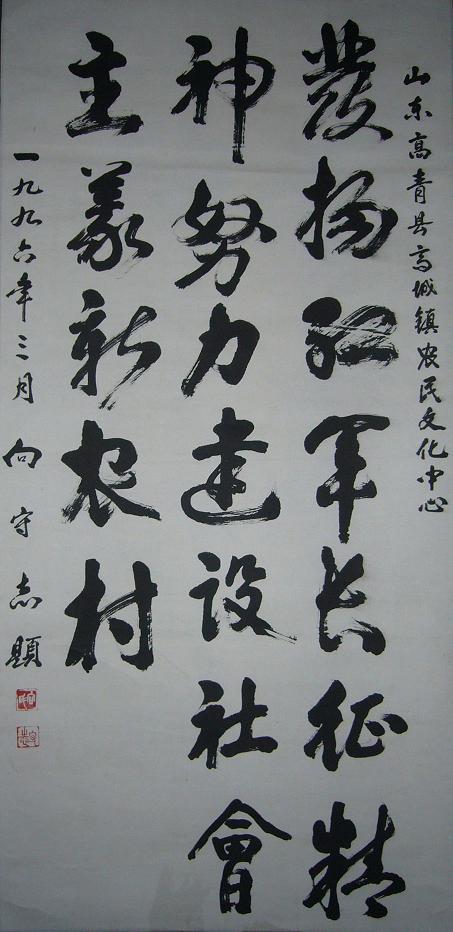 山东高青县高城镇农民文化中心
發扬红军长征精
神努力建设社會
主義新农村
一九九六年三月 向守志題